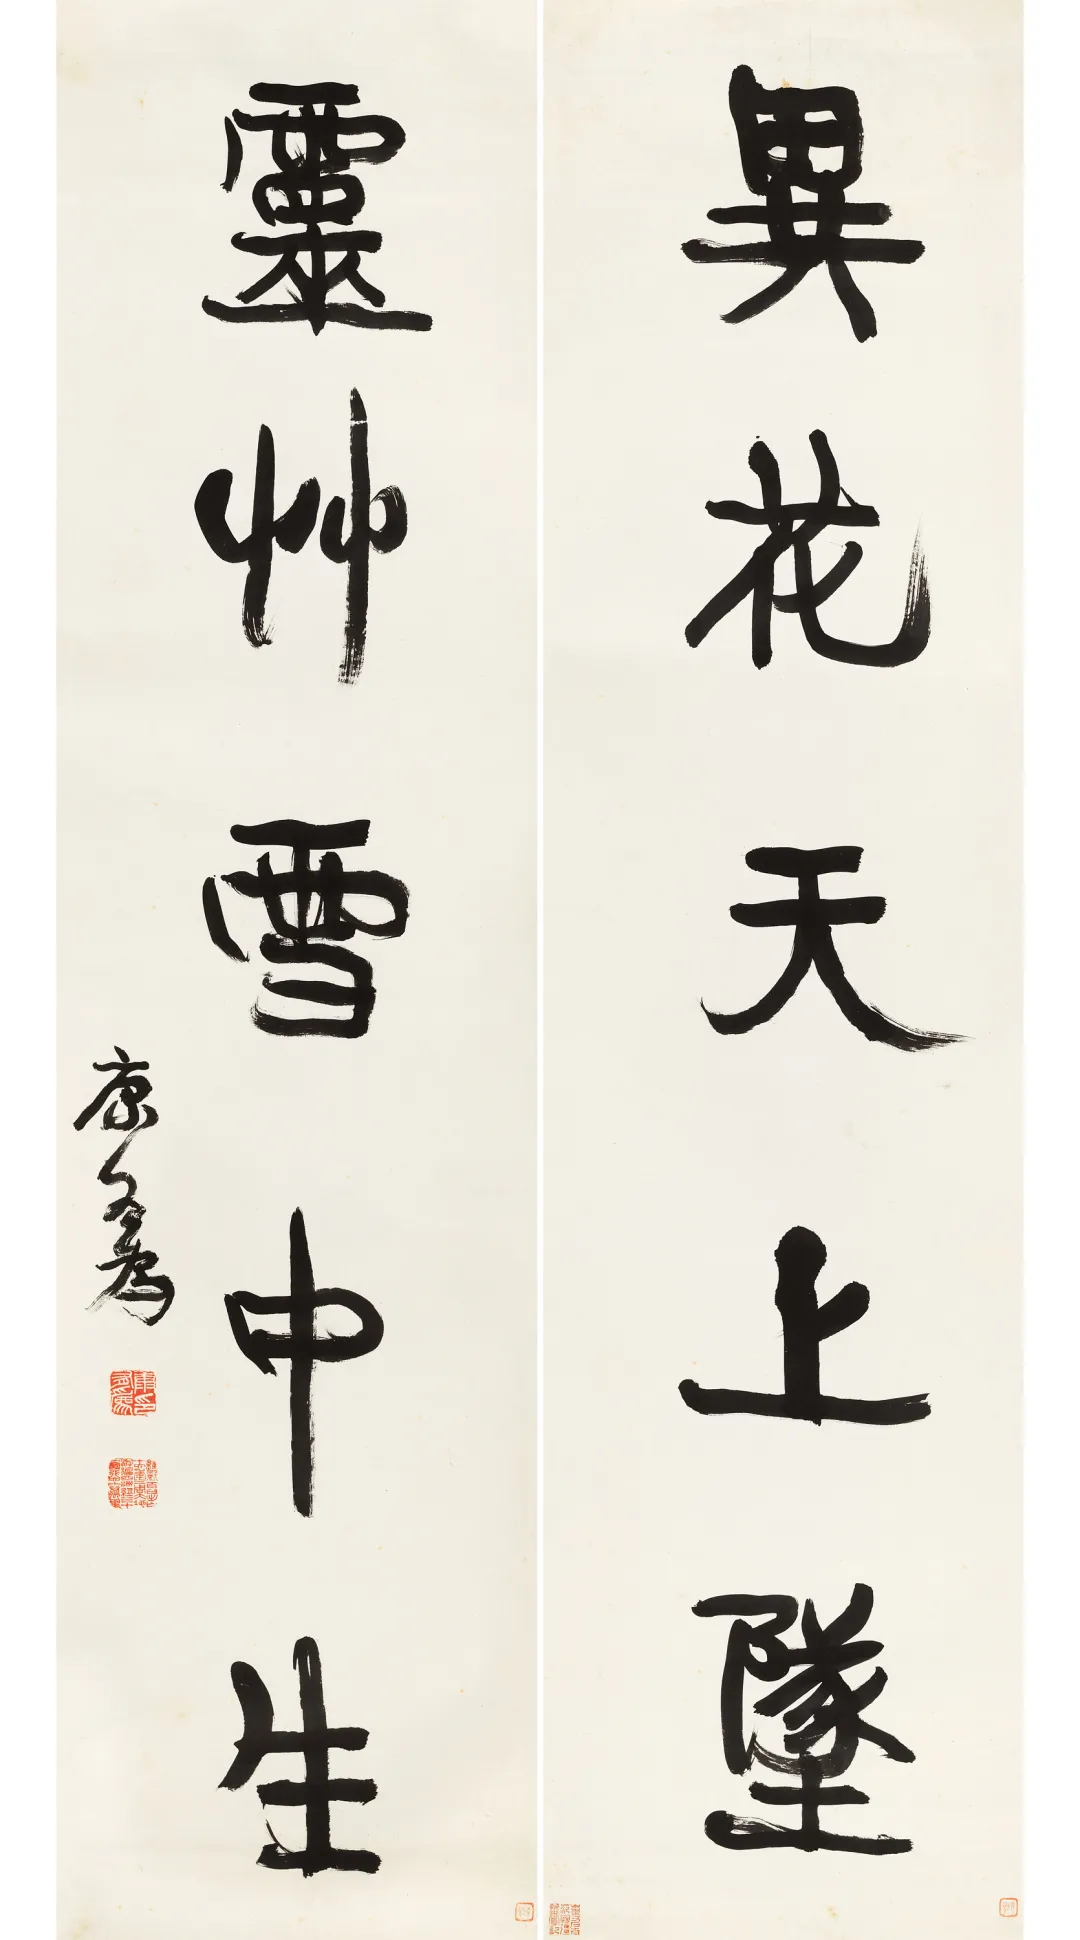 異花天上墜
靈艸雪中生
康有為